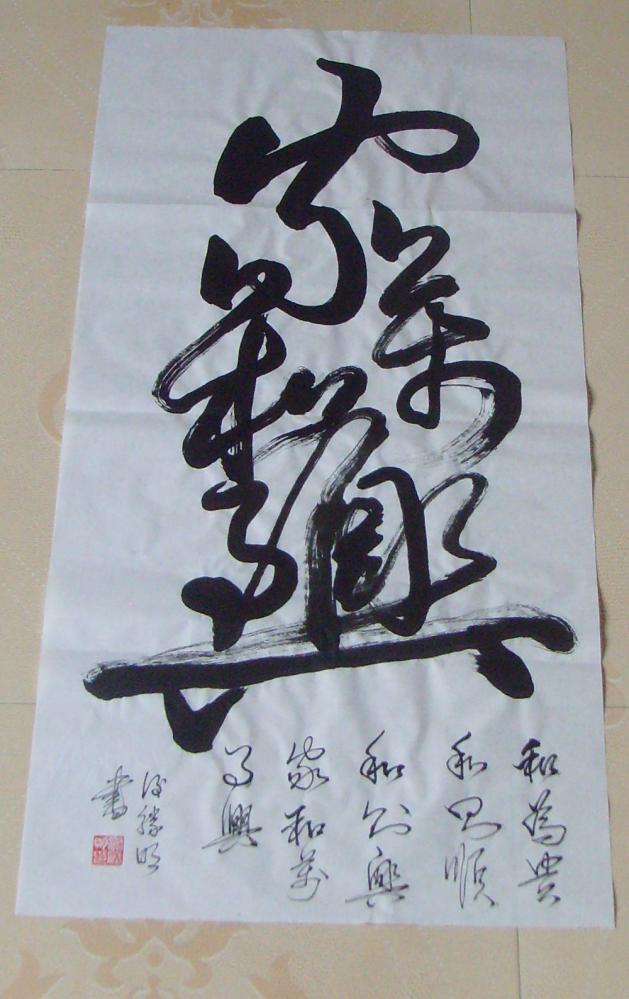 家和萬事興
和為貴
和則順
和則興
家和萬
事興
勝明
書